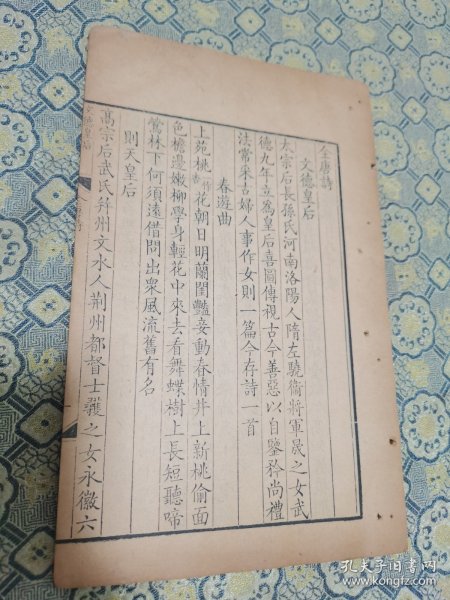 全唐詩
文德皇后
太宗后長孫氏河南洛陽人隋左驍衞將軍晟之女武
德九年立為皇后喜圖傳視古今善惡以自鑒矜尚禮
法常采古婦人事作女則一篇今存詩一首
春遊曲
上苑桃花朝日明蘭閨豔妾動春情井上新桃偷面
色檐邊嫩柳學身輕花中來去看舞蝶樹上長短聽啼
鶯林下何須遠借問出衆風流舊有名
則天皇后
高宗后武氏幷州文水人荆州都督士彠之女永徽六
孔夫子旧书网
www.kongfz.com